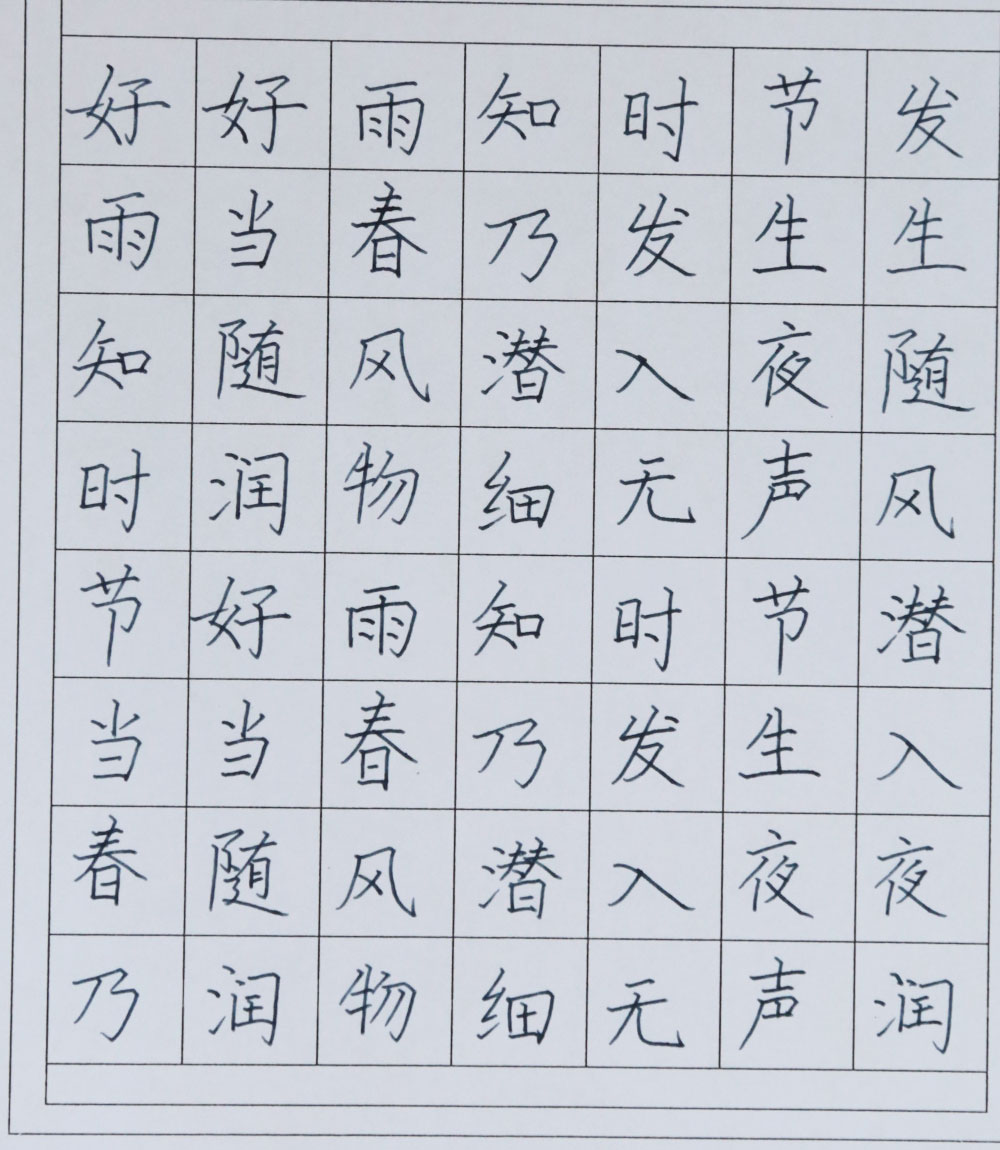 好好雨知时节发
雨当春乃发生生
知随风潜入夜随
时润物细无声风
节好雨知时节潜
当当春乃发生入
春随风潜入夜夜
乃润物细无声润